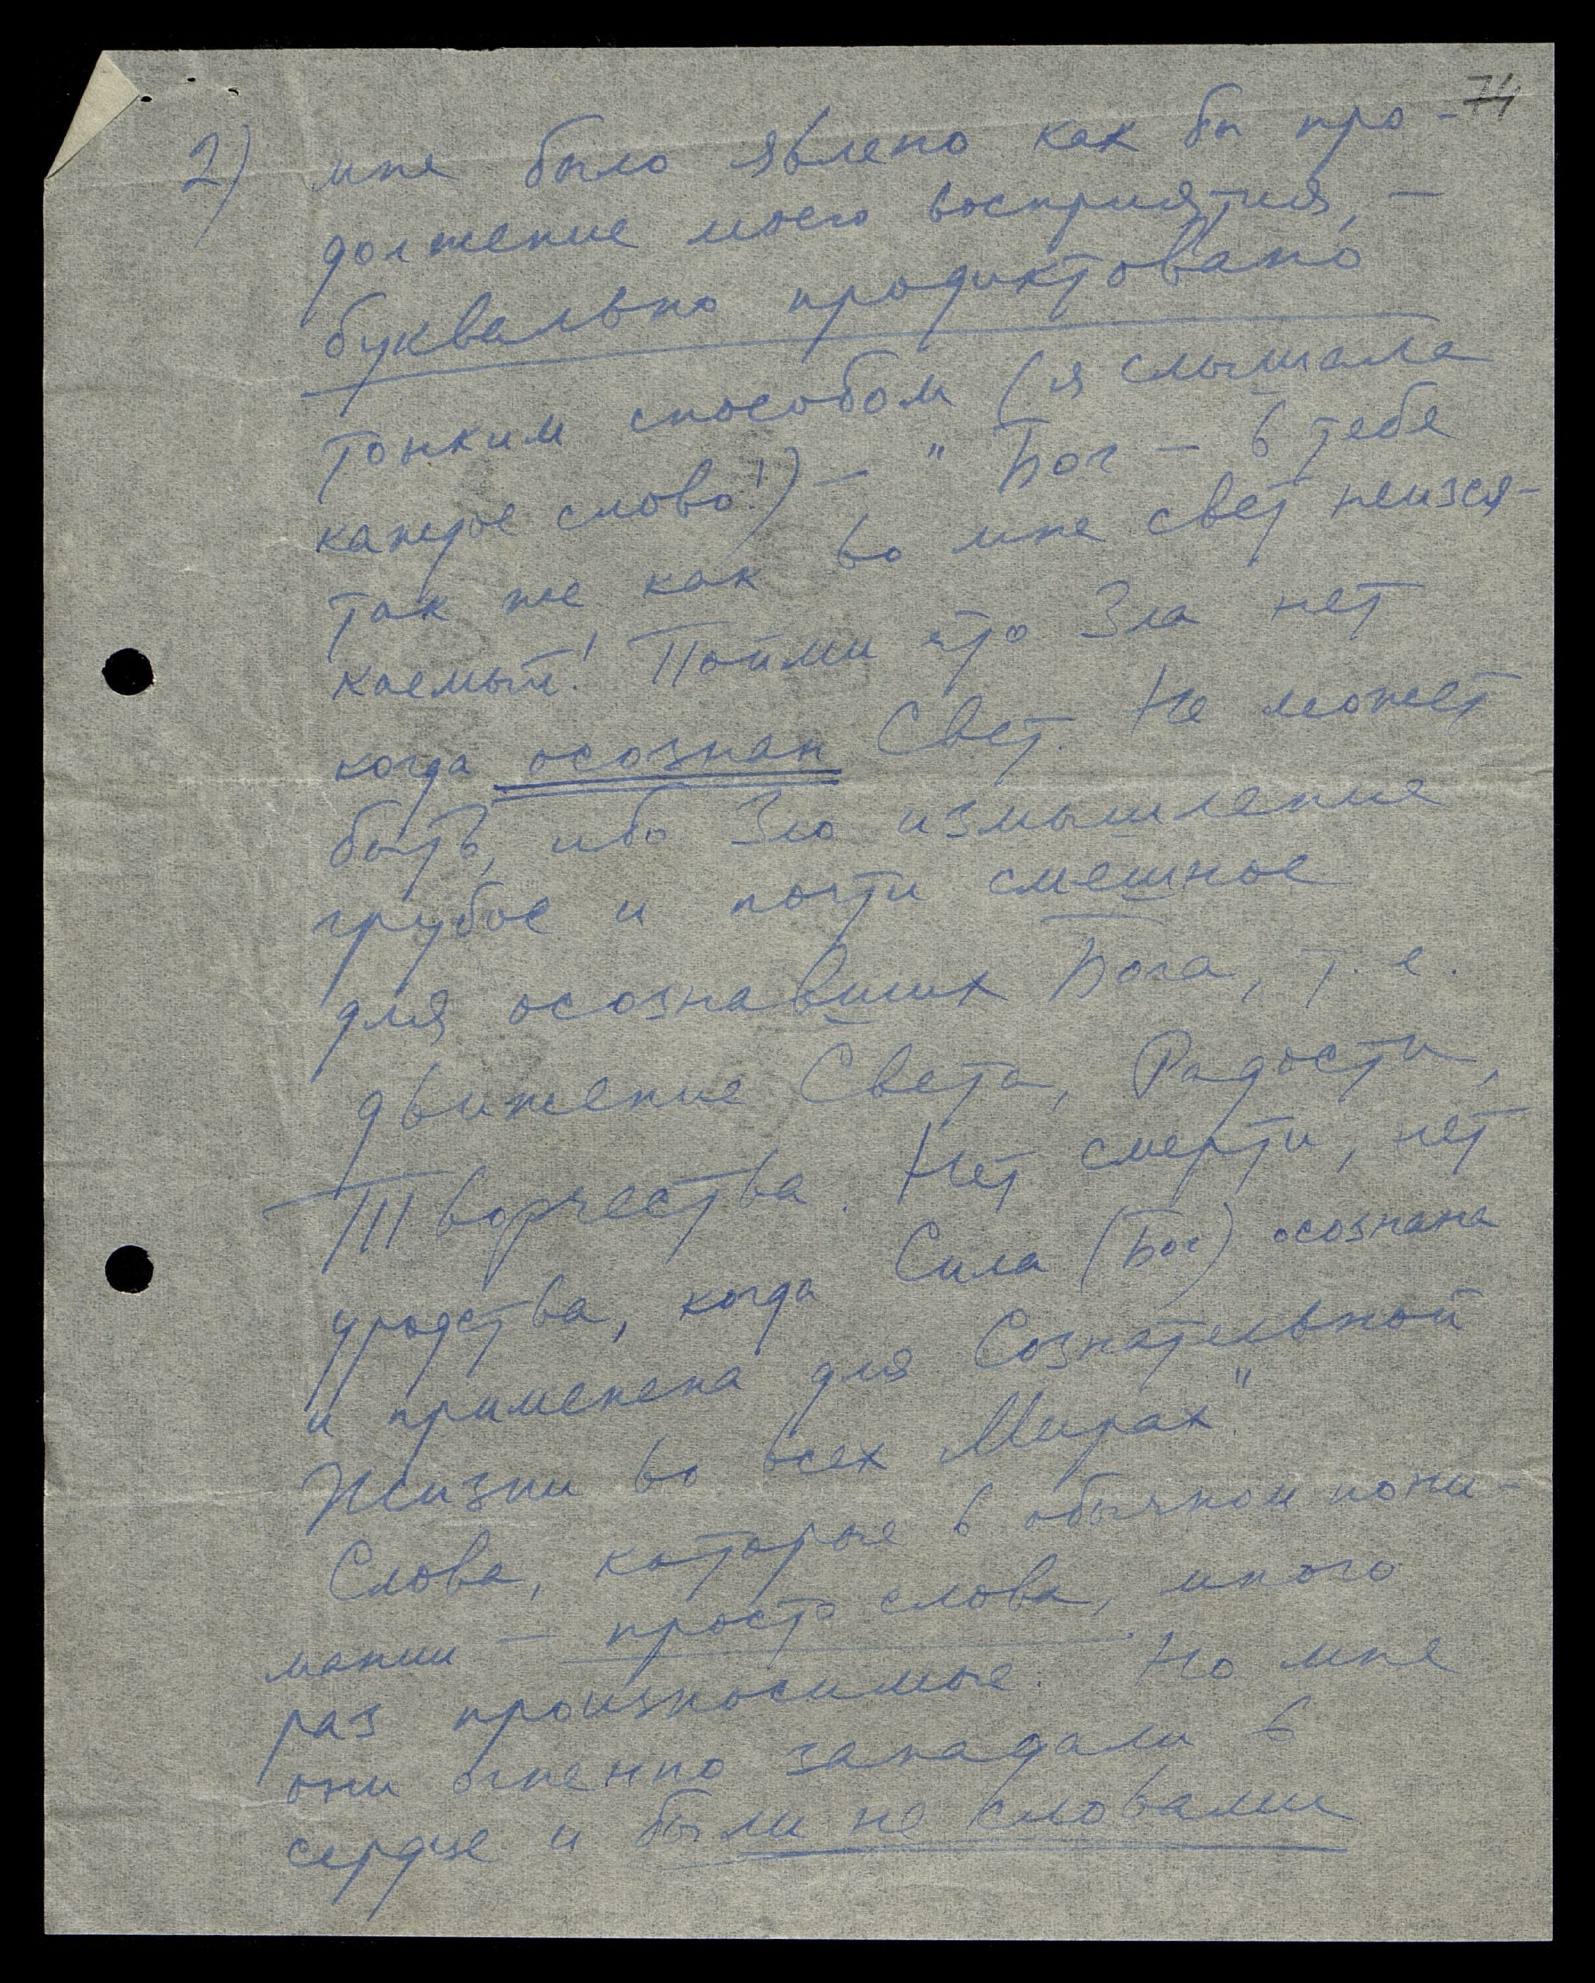 74
2) мне было явлено как бы про-
должение моего восприятия, —
буквально продиктовано
тонким способом (я слышала
каждое слово!) — "Бог — в тебе
так же как во мне свет неизся-
каемый! Пойми что Зла нет
когда осознан Свет. Не может
быть, ибо Зло измышление
грубое и почти смешное
для осознавших Бога, т.е.
движение Света, Радости,
Творчества. Нет смерти, нет
уродства, когда Сила (Бог) осознана
и применена для Сознательной
Жизни во всех Мирах."
Слова, которые в обычном пони-
мании — просто слова, много
раз произносимые. Но мне
они огненно западали в
сердце и были не словами